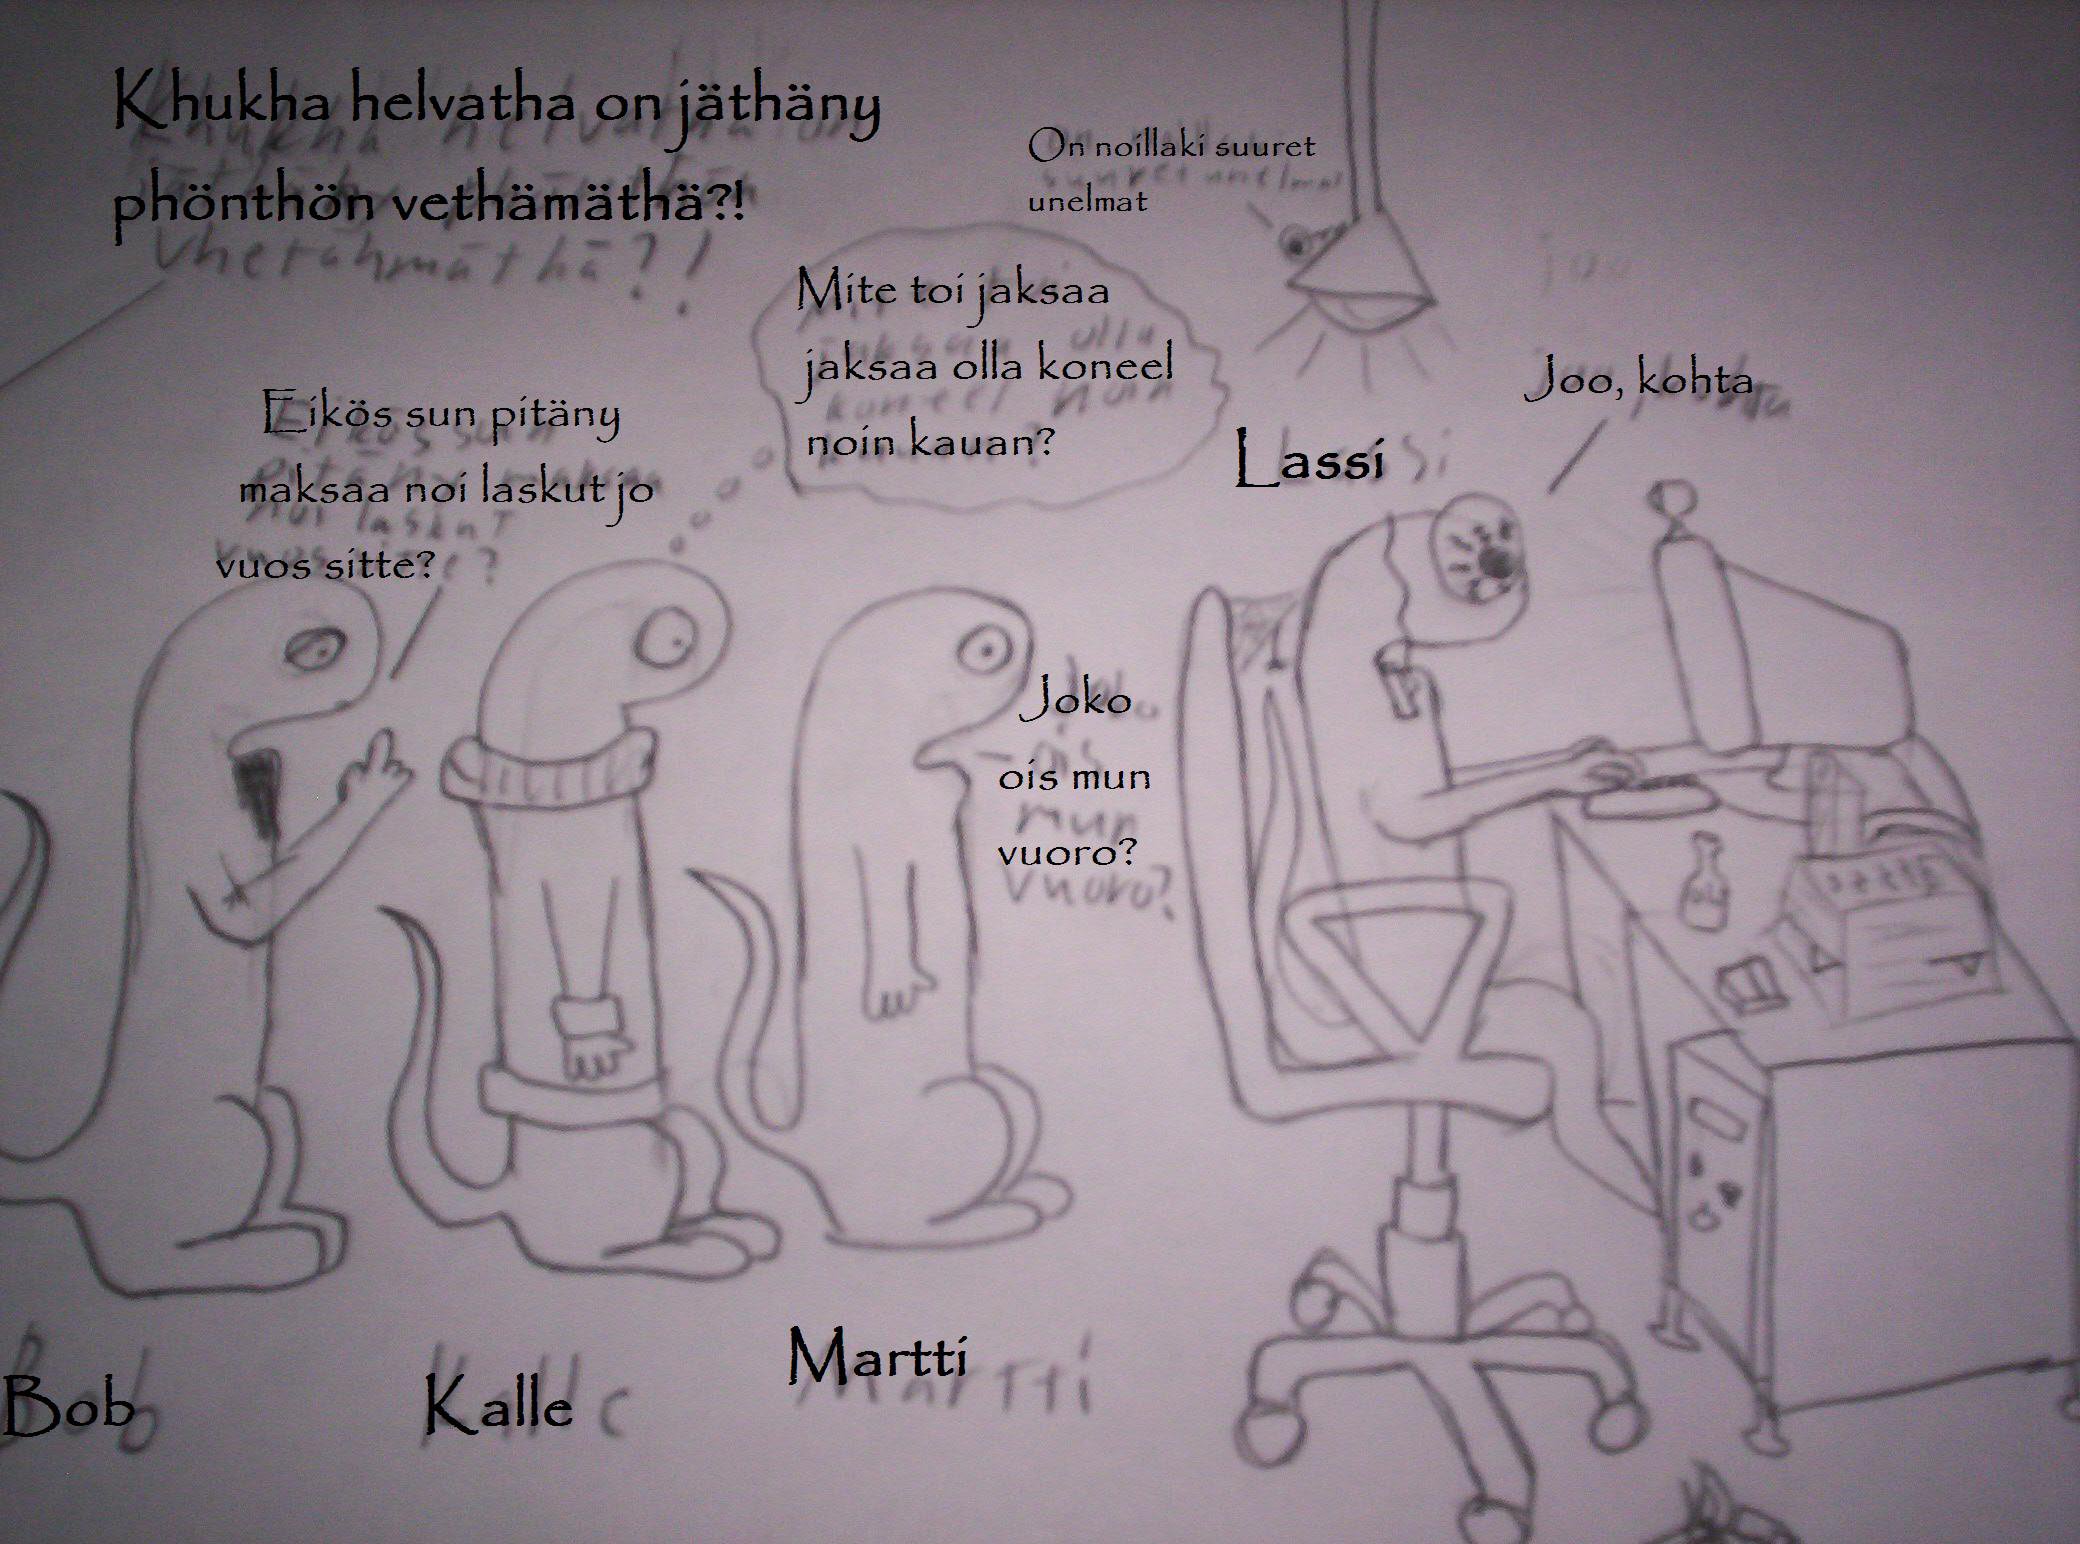 Khukha helvatha on jäthäny
phönthön vethämäthä?!
On noillaki suuret
unelmat
Mite toi jaksaa
jaksaa olla koneel
noin kauan?
Eikös sun pitäny
maksaa noi laskut jo
vuos sitte?
joo
Joo, kohta
Lassi
Joko
ois mun
vuoro?
Bob
Kalle
Martti